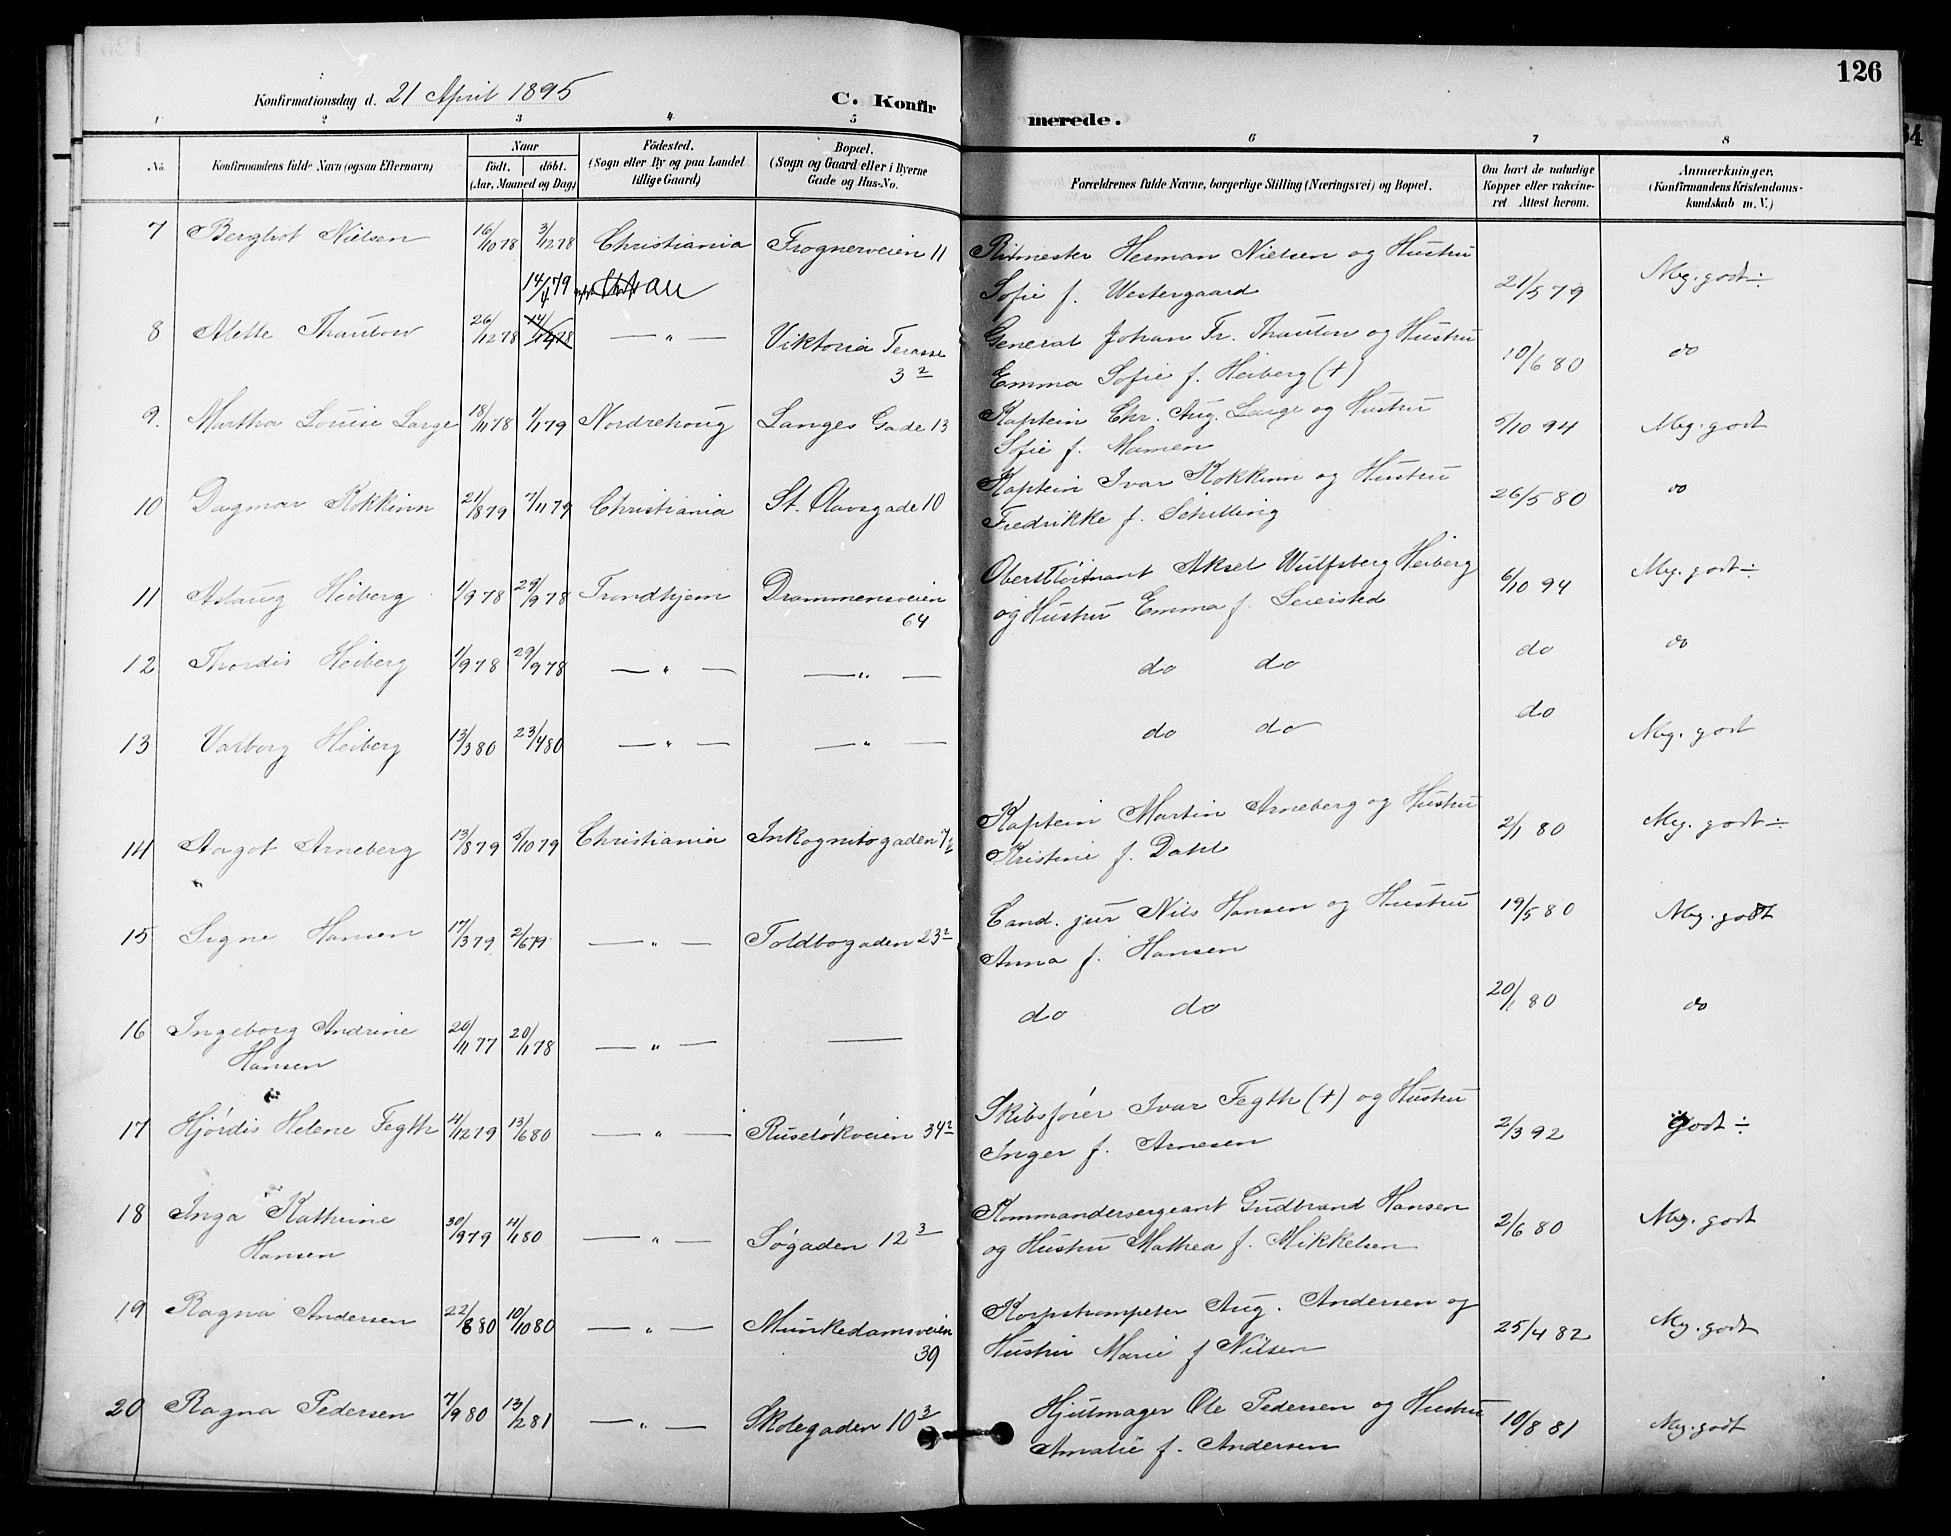 126
Konfirmationsdag d. 21 April 1895
C. Konfirmerede.
1 2 3 4 5 6 7 8
No.
Konfirmandens fulde Navn (ogsaa Efternavn)
Naar
født. døbt.
(Aar, Maaned og Dag)
Födested.
(Sogn eller By og paa Landet
tillige Gaard)
Bopæl.
(Sogn og Gaard eller i Byerne
Gade og Hus-No.
Forældrenes fulde Navne, borgerlige Stilling (Næringsvei) og Bopæl.
Om havt de naturlige
Kopper eller vakcine-
ret Attest herom.
Anmærkninger,
(Konfirmandens Kristendoms-
kundskab m. V.)
7 Bergliot Nielsen 16/10 78 3/12 78 Christiania Frognerveien 11 Ritmester Herman Nielsen og Hustru
Sofie f. Westergaard 21/5 79 Meg. godt ÷
14/4 79
8 Alette Thaulow 26/12 78 14/12 78 — " — Viktoria Terasse
3 2 General Johan Fr. Thaulow og Hustru
Emma Sofie f. Heiberg (+) 10/6 80 do
9. Martha Louise Lange 18/11 78 1/1 79 Nordrehoug Langes Gade 13 Kaptein Chr. Aug. Lange og Hustru
Sofie f. Mamen 5/10 94 Meg. godt
10 Dagmar Kokkinn 21/8 79 7/11 79 Christiania St. Olavsgade 10 Kaptein Ivar Kokkinn og Hustru
Fredrikke f. Schilling 26/5 80 do
11 Aslaug Heiberg 1/9 78 29/9 78 Trondhjem Drammensveien
64 Oberstløitnant Aksel Wulfsberg Heiberg
og Hustru Emma f. Seiersted 6/10 94 Meg. godt ÷
12 Thordis Heiberg 1/9 78 29/9 78 — " — — " — do do do do
13 Valborg Heiberg 13/3 80 23/4 80 — " — — " — do do do Meg. godt
14 Aagot Arneberg 13/8 79 5/10 79 Christiania Inkognitogaden Kaptein Martin Arneberg og Hustru
Kristine f. Dahl 2/1 80 Meg. godt ÷
15 Signe Hansen 17/3 79 2/6 79 — " — Toldbogaden 23 2 Cand. jur Nils Hansen og Hustru
Anna f. Hansen 19/5 80 Meg. godt
16 Ingeborg Andrine
Hansen 20/11 77 20/1 78 — " — — do do 20/1 80 do
17 Hjørdis Helene Fegth 4/12 79 13/6 80 — " — Ruseløkveien 34 2 Skibsfører Ivar Fegth (+) og Hustru
Inger f. Arnesen 2/3 92 godt ÷
18 Inga Kathrine
Hansen 30/9 79 4/1 80 — " — Søgaden 12 3 Kommandersergeant Gudbrand Hansen
og Hustru Mathea f. Mikkelsen 2/6 80 Meg. godt
19 Ragna Andersen 22/8 80 10/10 80 — " — Munkedamsveien
39 Korpstrompeter Aug. Andersen og
Hustru Marie f Nilsen 25/4 82 Meg. godt
20 Ragna Pedersen 7/9 80 13/2 81 — " — Skolegaden 10 3 Hjulmager Ole Pedersen og Hustru
Amalie f. Andersen 10/8 81 Meg. godt